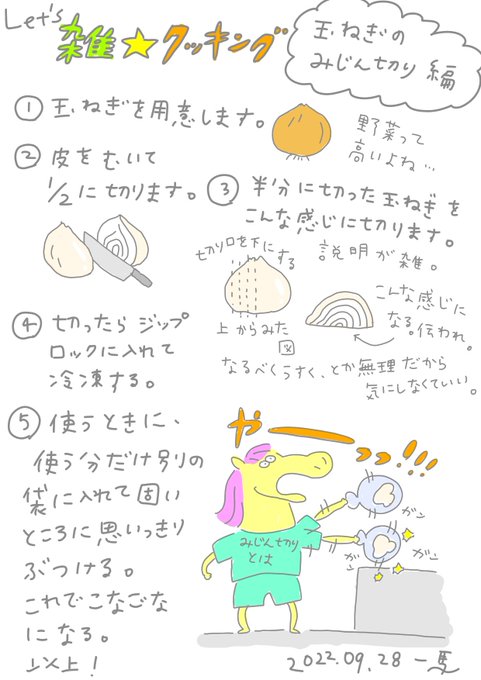 Let's
雑☆クッキング
玉ねぎの
みじん切り編
① 玉ねぎを用意します。
野菜って
高いよね…
② 皮をむいて
1/2に切ります。
③ 半分に切った玉ねぎを
こんな感じに切ります。
切り口を下にする
説明が雑。
上からみた
図
こんな感じに
なる。伝われ。
なるべくうすく、とか無理だから
気にしなくていい。
④ 切ったらジップ
ロックに入れて
冷凍する。
⑤ 使うときに、
使う分だけ別の
袋に入れて固い
ところに思いっきり
ぶつける。
これでこなごな
になる。
以上!
やーーっっ!!!
みじん切り
とは
ガン
ガン
ガン
2022.09.28 一馬